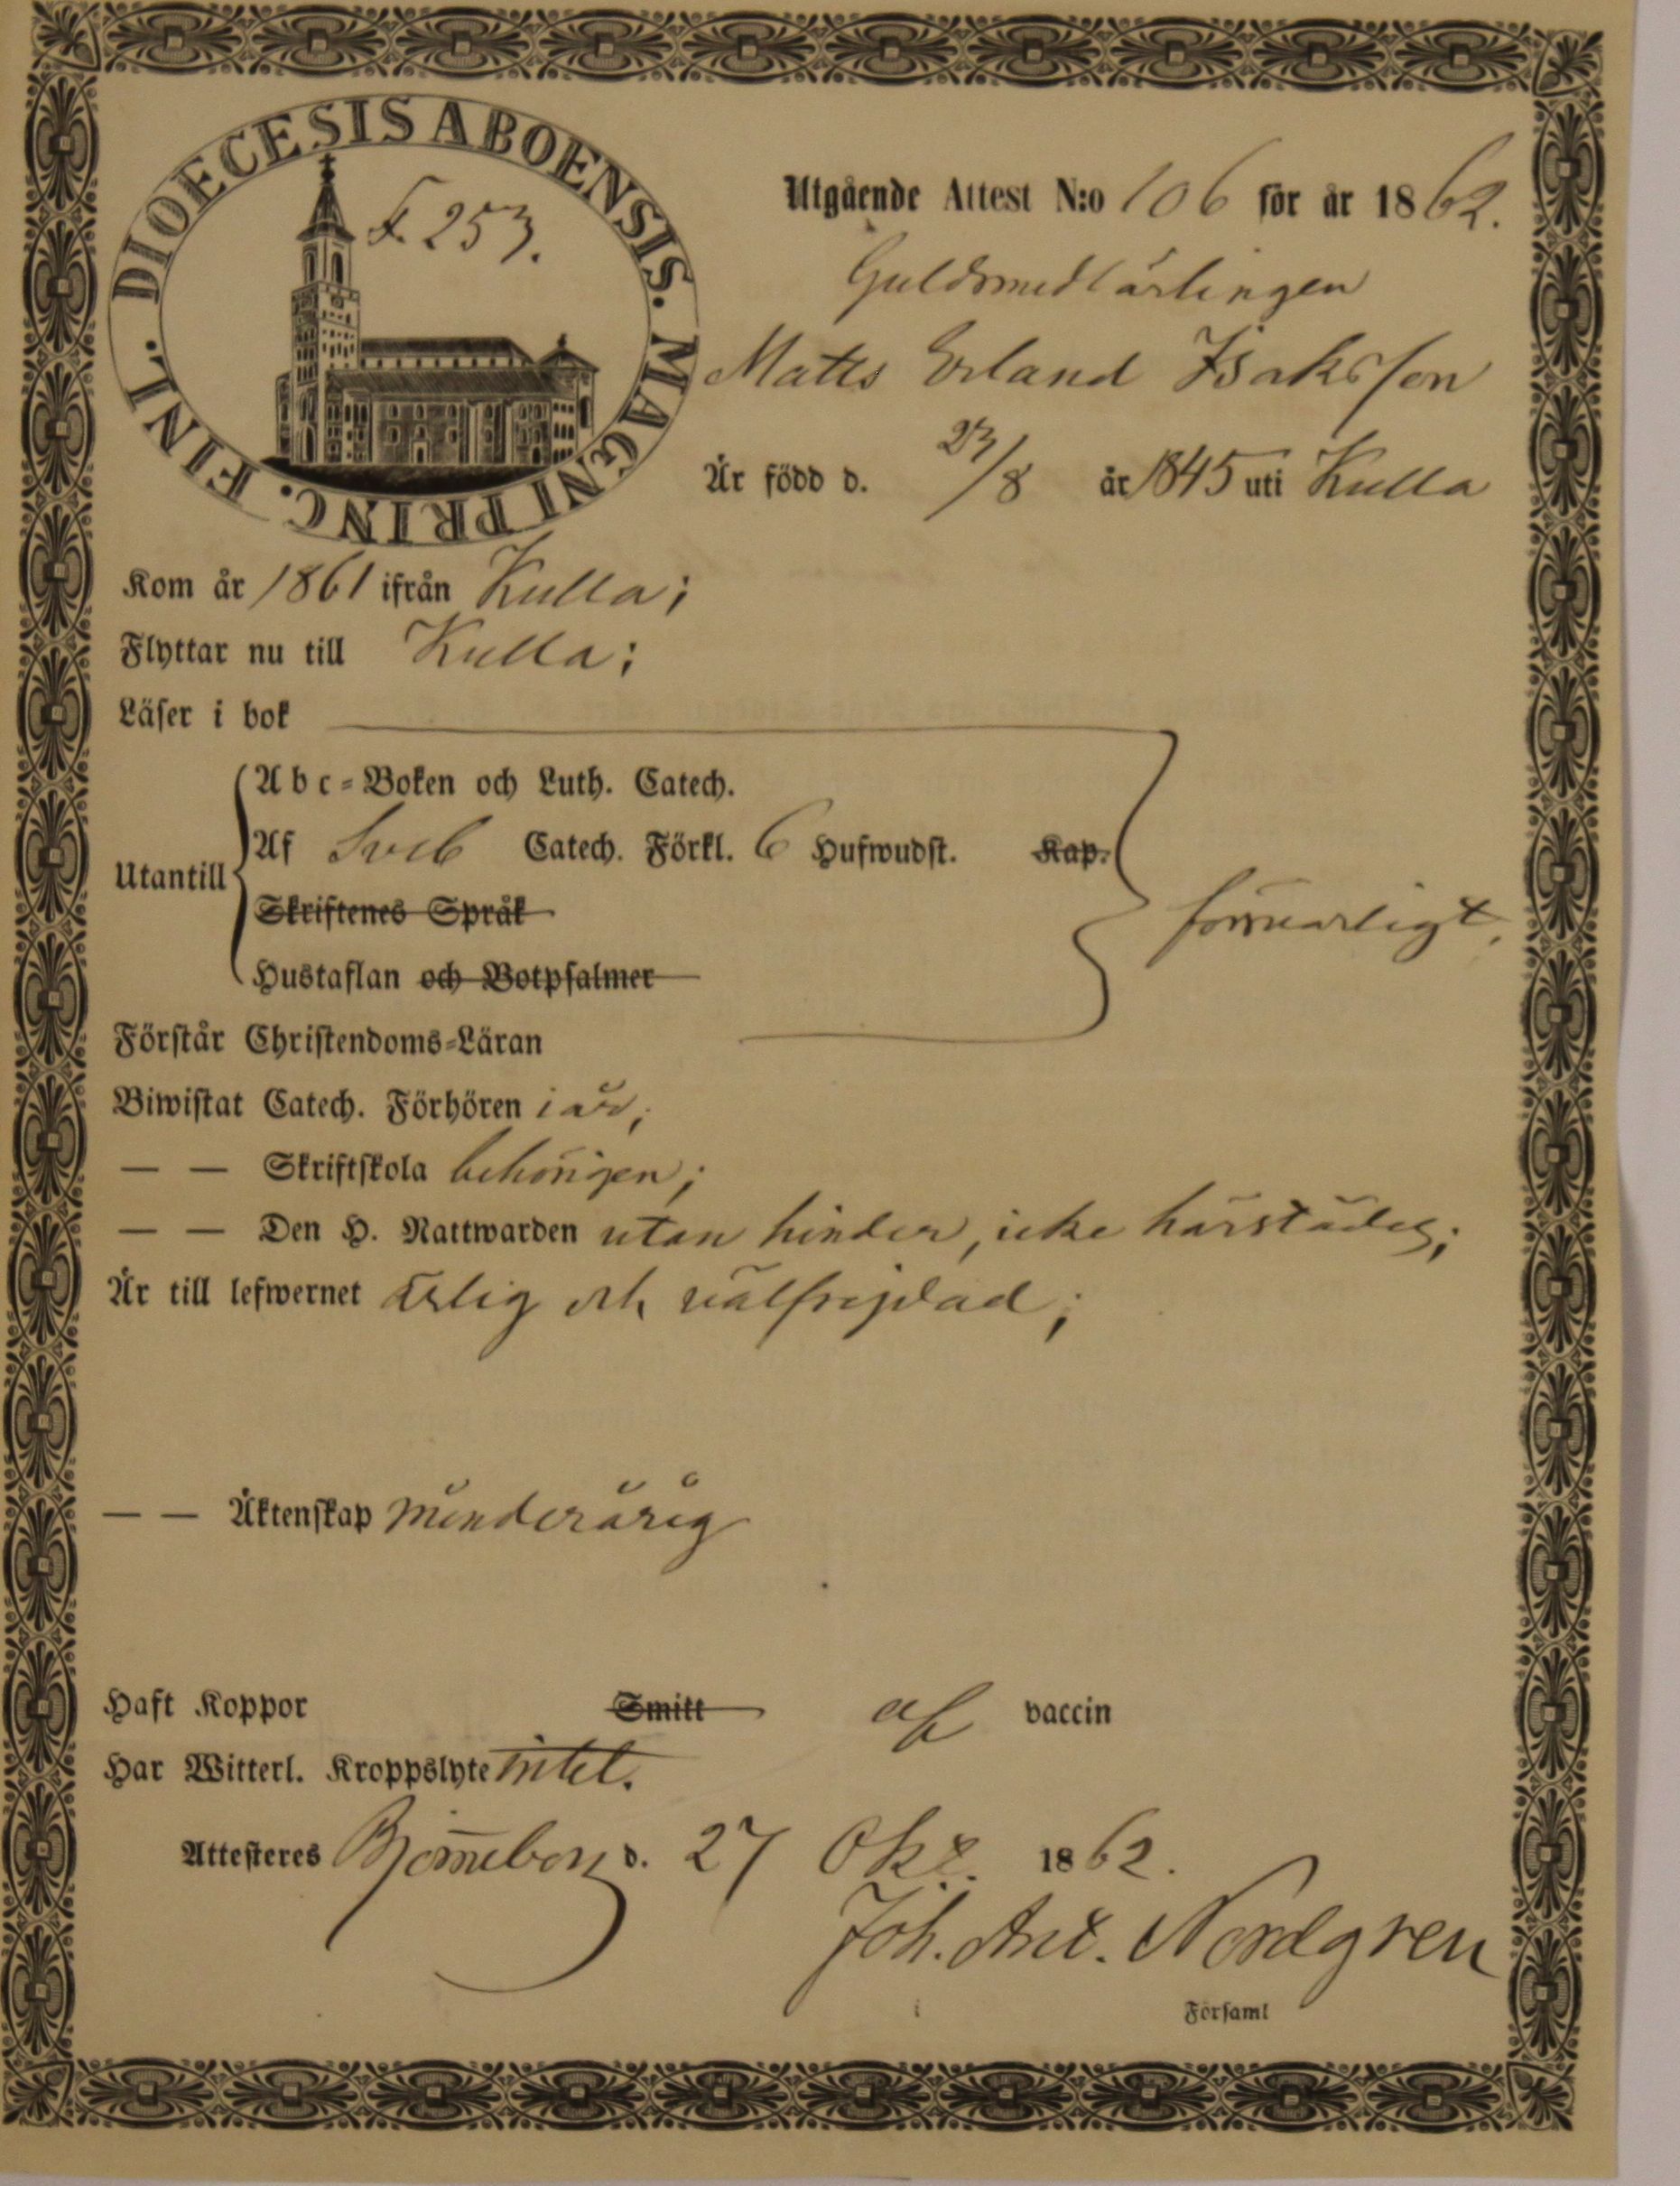 DIOECESIS ABOENSIS. MAGNI PRINC. FINL.
F. 253.
Utgående Attest N:o 106 för år 1862.
Guldsmedlärlingen
Matts Erland Isaksson
Är född d. 23/8 år 1845 uti Kulla
Kom år 1861 ifrån Kulla;
Flyttar nu till Kulla;
Läser i bok
Abc=Boken och Luth. Catech.
Utantill Af Sveb Catech. Förkl. 6 Hufwudst. Kap.
Skriftenes Språk
försvarligt.
Hustaflan och Botpsalmer
Förstår Christendoms=Läran
Biwistat Catech. Förhören i år;
— — Skriftskola behörigen;
— — Den H. Nattwarden utan hinder, icke härstädes;
Är till lefwernet ärlig och välfrejdad;
— — Äktenskap minderårig
Haft Koppor Smitt af vaccin
Har Witterl. Kroppslyte intet.
Attesteres Björneborg d. 27 Okt. 1862.
Joh. Ant. Nordgren
i Församl